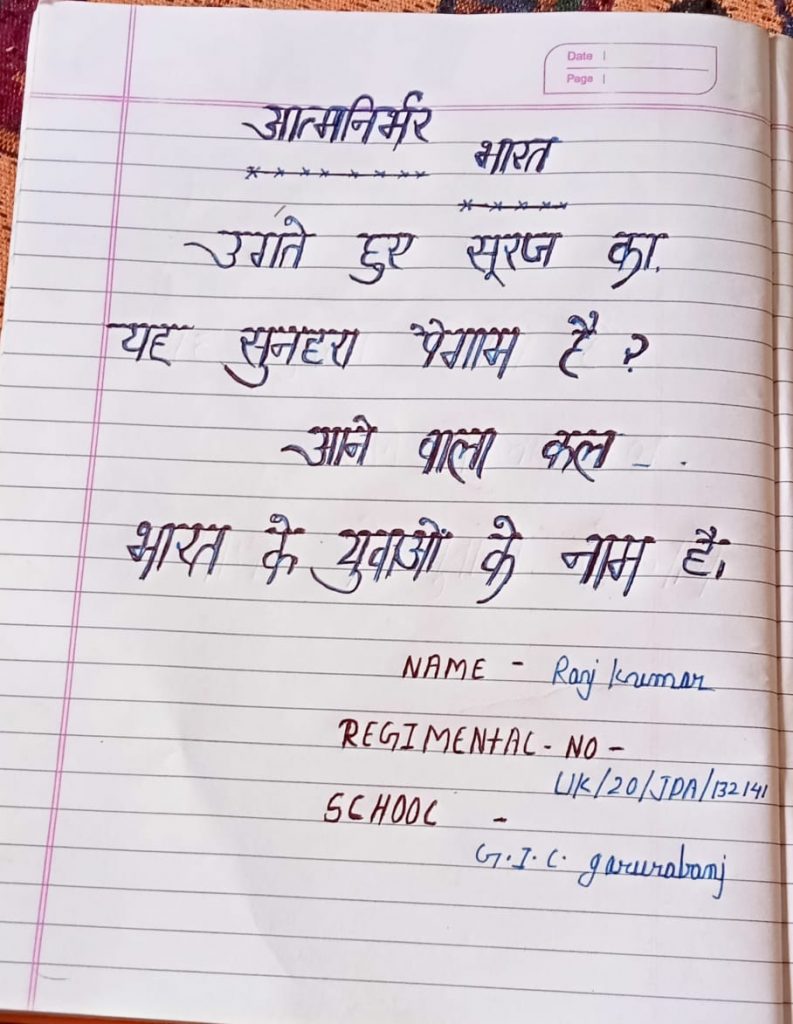 Date
Page
आत्मनिर्भर
भारत
उगते हुए सूरज का,
यह सुनहरा पेगाम है ?
आने वाला कल - .
भारत के युवाओं के नाम है,
NAME - Raj Kumar
REGIMENTAL - NO -
UK/20/JDA/132141
SCHOOL -
G.I.C. garurabanj